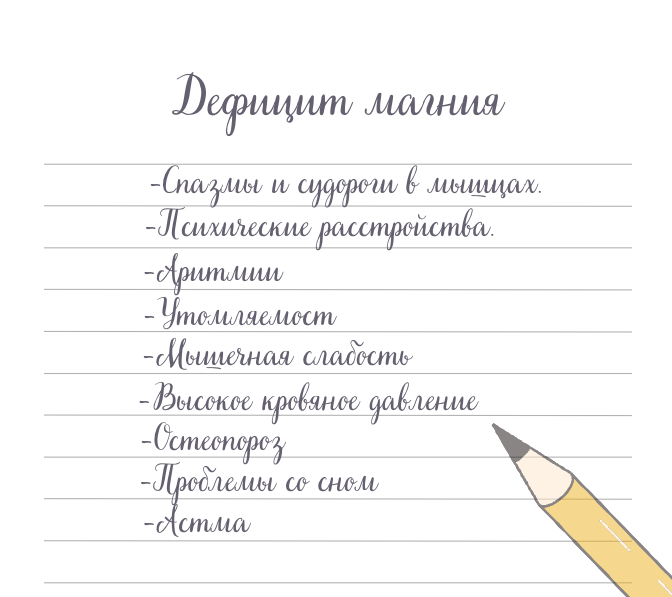 Дефицит магния
-Спазмы и судороги в мышцах.
-Психические расстройства.
-Аритмии
-Утомляемост
-Мышечная слабость
-Высокое кровяное давление
-Остеопороз
-Проблемы со сном
-Астма